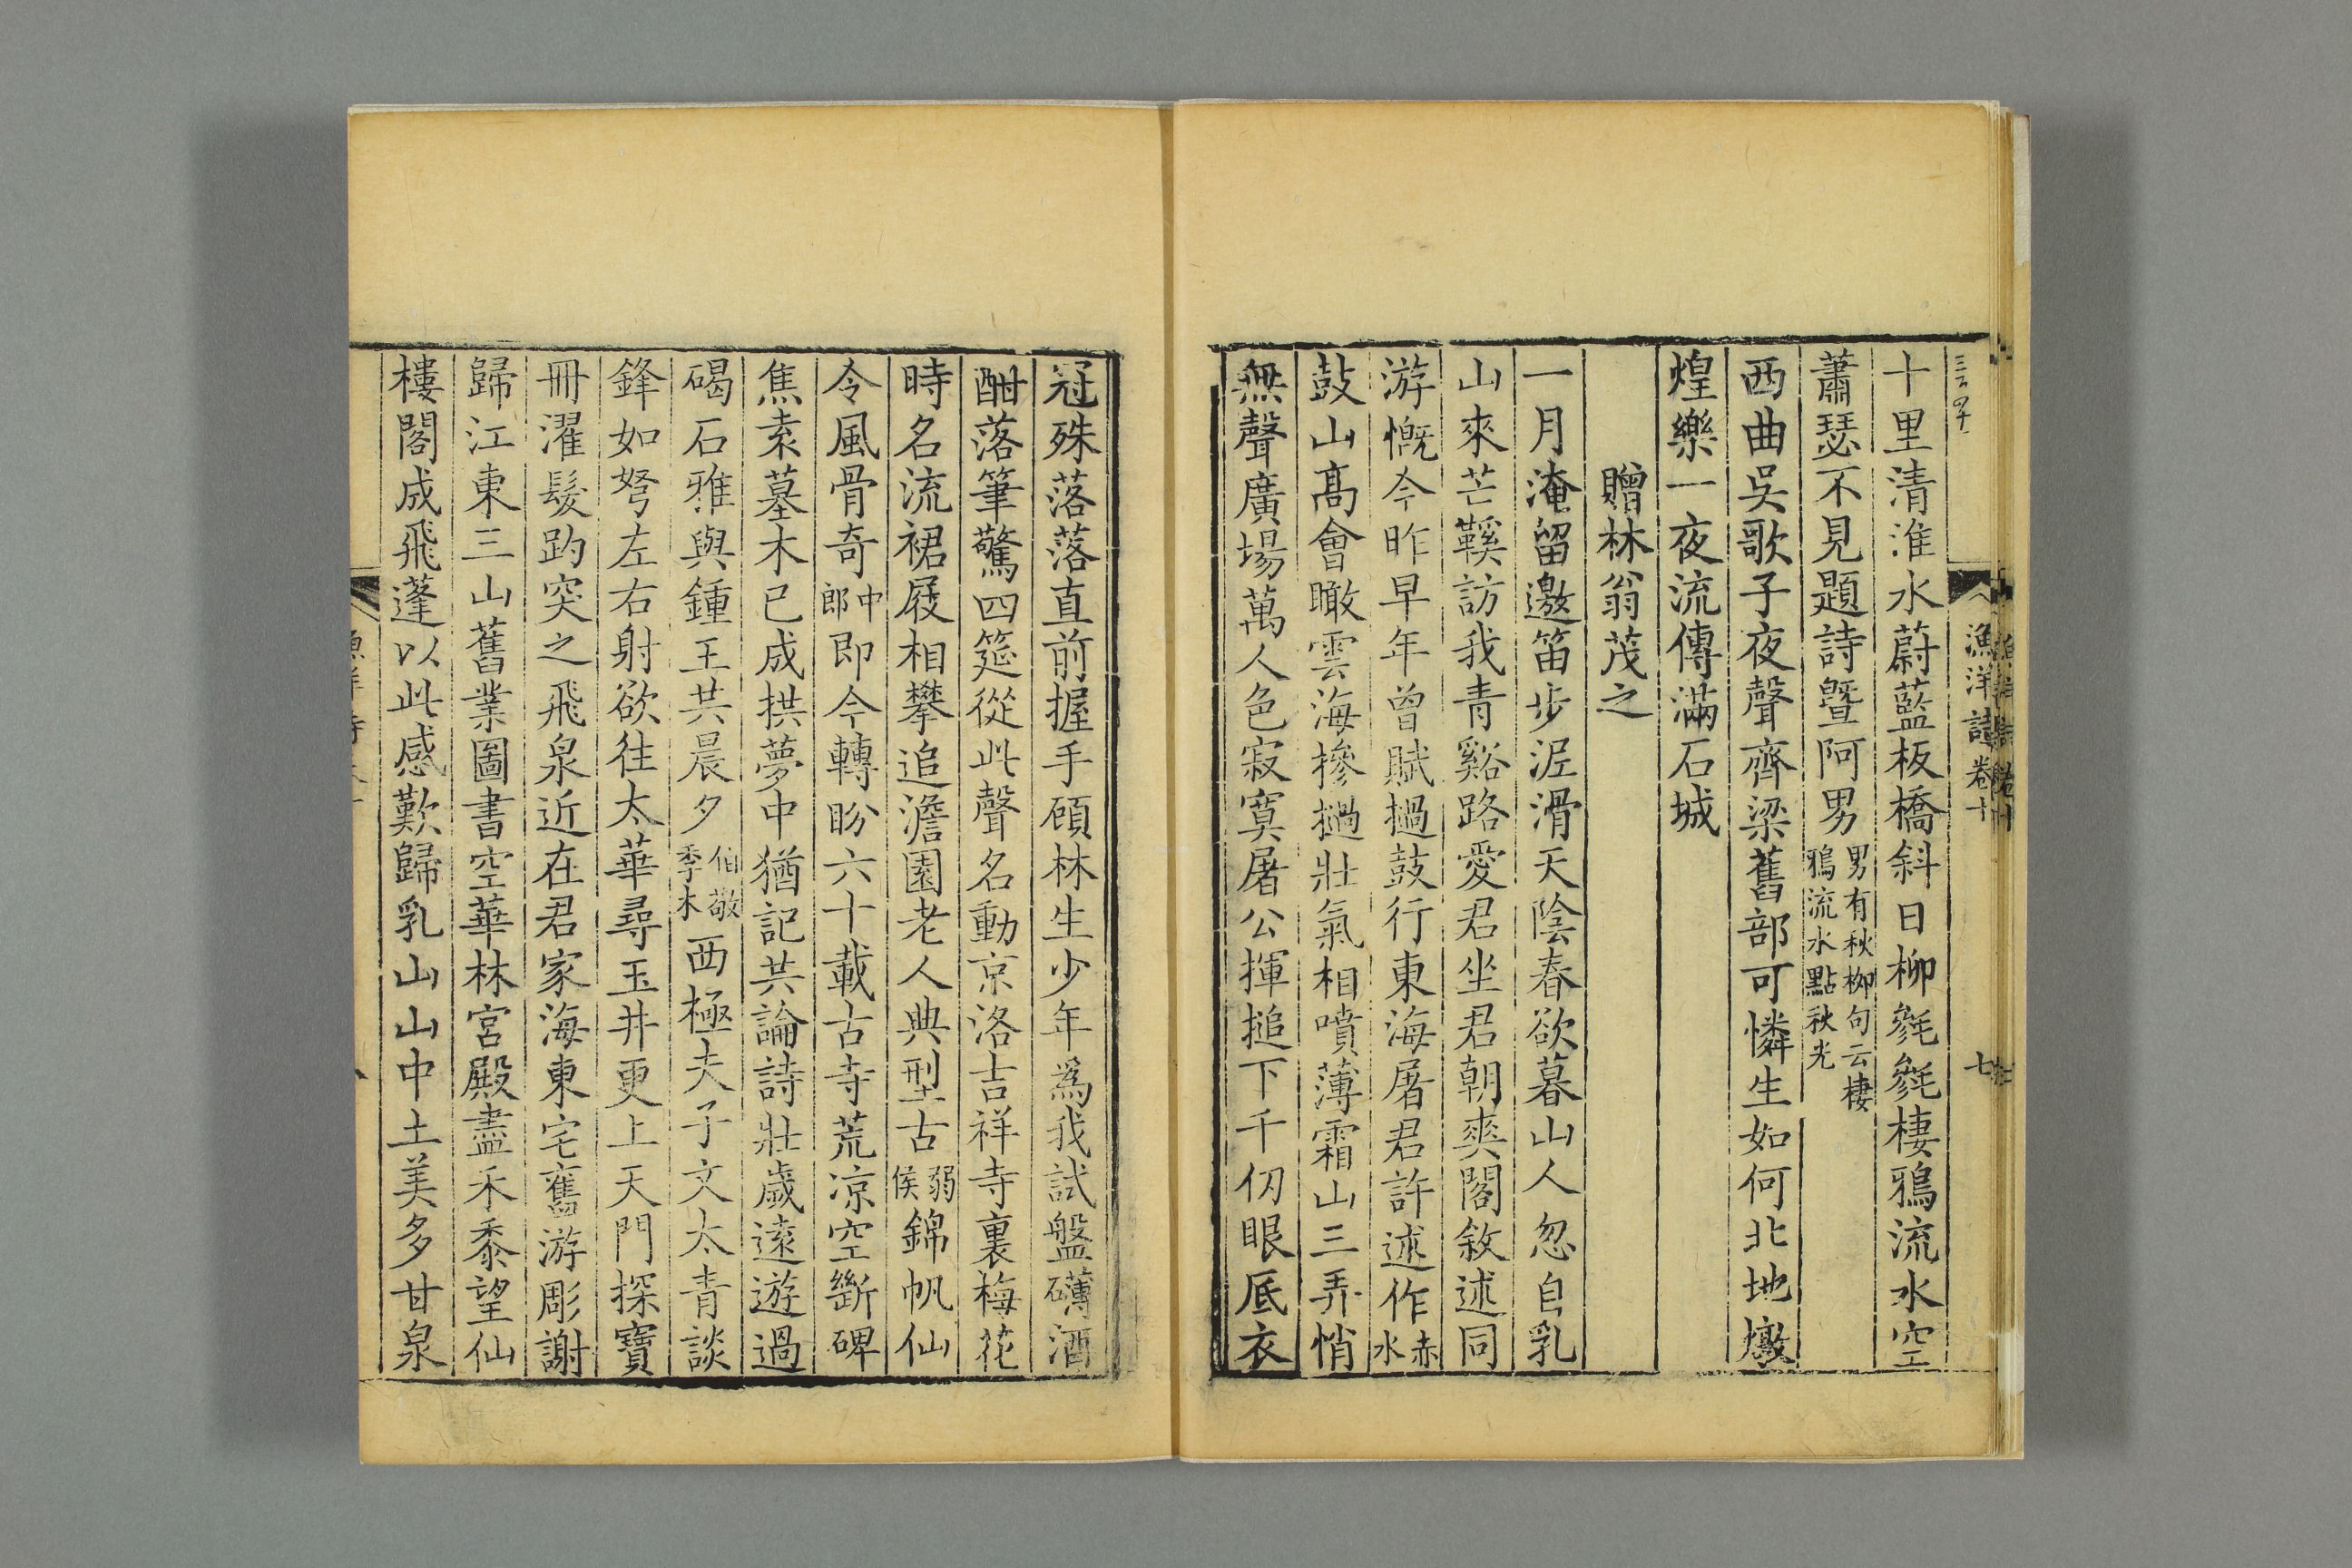 三百四十
漁洋詩卷十
七
十里清淮水蔚藍板橋斜日柳毿毿棲鴉流水空
蕭瑟不見題詩曁阿男男有秋柳句云棲鴉流水點秋光
西曲吳歌子夜聲齊梁舊部可憐生如何北地燉
煌樂一夜流傳滿石城
贈林翁茂之
一月淹留邀笛步泥滑天陰春欲暮山人忽自乳
山來芒鞵訪我青谿路愛君坐君朝爽閣敘述同
游慨今昨早年曾賦撾鼓行東海屠君許述作赤水
鼓山高會瞰雲海摻撾壯氣相噴薄霜山三弄悄
無聲廣場萬人色寂寞屠公揮搥下千仞眼底衣
冠殊落落直前握手頋林生少年為我試盤礴酒
酣落筆驚四筵從此聲名動京洛吉祥寺裏梅花
時名流裙屐相攀追澹園老人典型古弱侯錦帆仙
令風骨奇中郎即今轉盻六十載古寺荒凉空斷碑
焦袁墓木已成拱夢中猶記共論詩壯歲遠遊過
碣石雅與鍾王共晨夕伯敬季木西極夫子文太青談
鋒如弩左右射欲往太華尋玉井更上天門探寶
冊濯髮趵突之飛泉近在君家海東宅舊游彫謝
歸江東三山舊業圖書空華林宮殿盡禾黍望仙
樓閣成飛蓬以此感歎歸乳山山中土美多甘泉